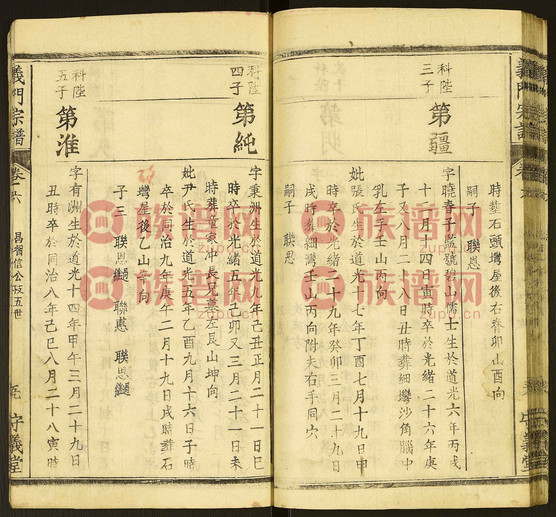 時葬石頭塆屋後右脊卯山酉向
嗣子 聯恩
科陞
三子
第疆
字曉春子監號復山儒士生於道光六年丙戌
十一月十四日寅時卒於光緒二十六年庚
子又八月二十八日丑時葬細塆沙角腦中
乳左子壬山丙向
妣張氏生於道光十七年丁酉七月十九日申
時卒於光緒二十九年癸卯三月二十九日
戌時葬細灣壬山丙向附夫右手同穴
嗣子 聯恩
科陞
四子
第純
字東洲生於道光九年己丑正月二十一日巳
時卒於光緒五年己卯又三月二十一日未
時葬童家冲長兄塋左艮山坤向
妣尹氏生於道光五年乙酉九月十六日子時
卒於同治九年庚午二月十九日戌時葬石
塆屋後乙山辛向
子三 聯恩繼 聯慧 聯思繼
科陞
五子
第淮
字有洲生於道光十四年甲午三月二十九日
丑時卒於同治八年己巳八月二十八寅時
義門宗譜
卷六
昌智信公改五世
守義堂
族谱网
www.zupu.cn